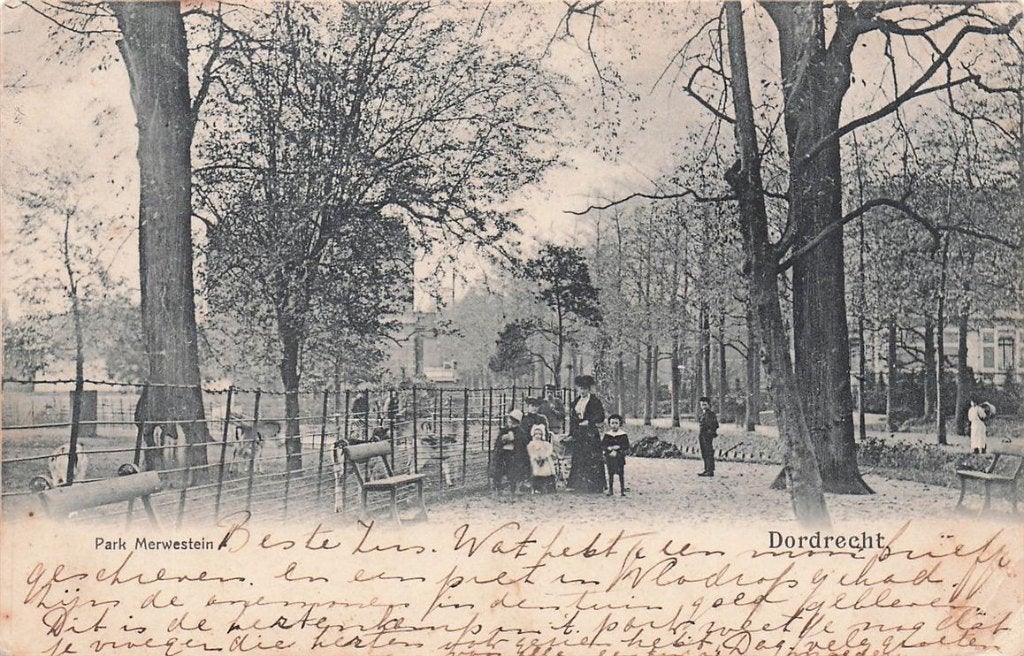 Park Merwestein
Dordrecht
Beste Zus. Wat hebt je een mooi briefje
geschreven. en een pret in Vlodrop gehad.
Zijn de anemonen in den tuin goed gebleven
Dit is de hertenkamp uit park weet je nog dat
je vroeger die herten gezien hebt, Dag, vele groeten
van alle